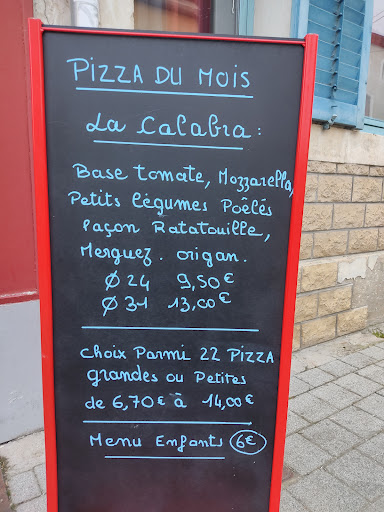 PIZZA DU MOIS
La Calabra :
Base tomate, Mozzarella,
Petits légumes Poêlés
façon Ratatouille,
Merguez. origan.
Ø 24 9,50€
Ø 31 13,00€
choix Parmi 22 PIZZA
grandes ou Petites
de 6,70€ à 14,00€
Menu Enfants 6€